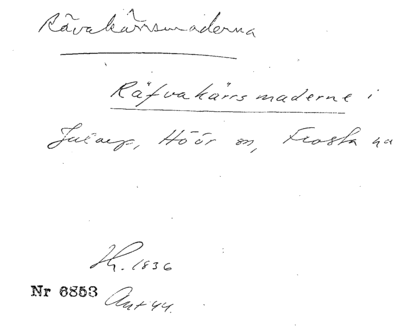 Rävakärrsmaderna
Räfvakärrsmaderne i
Jularp, Höör sn, Frosta hd
Hg. 1836
Nr 6853 Ant 44.